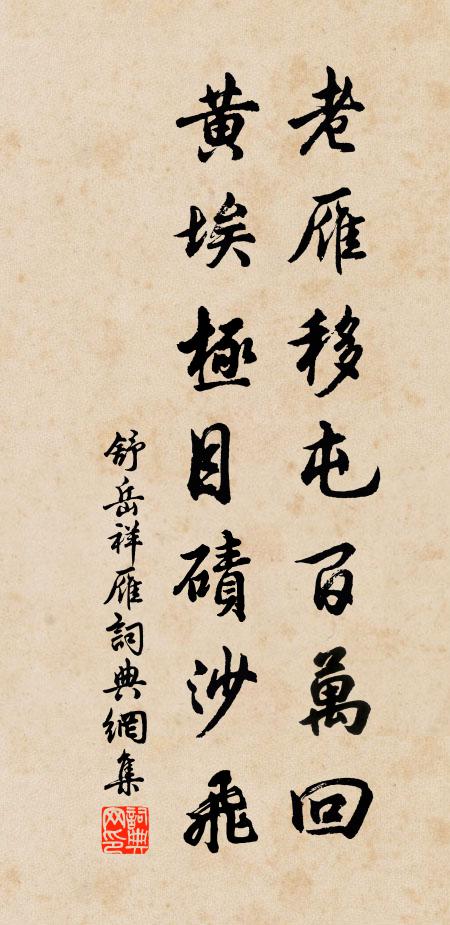 老雁移屯百萬回
黃埃極目磧沙飛
舒岳祥雁詞典網集
詞典网印